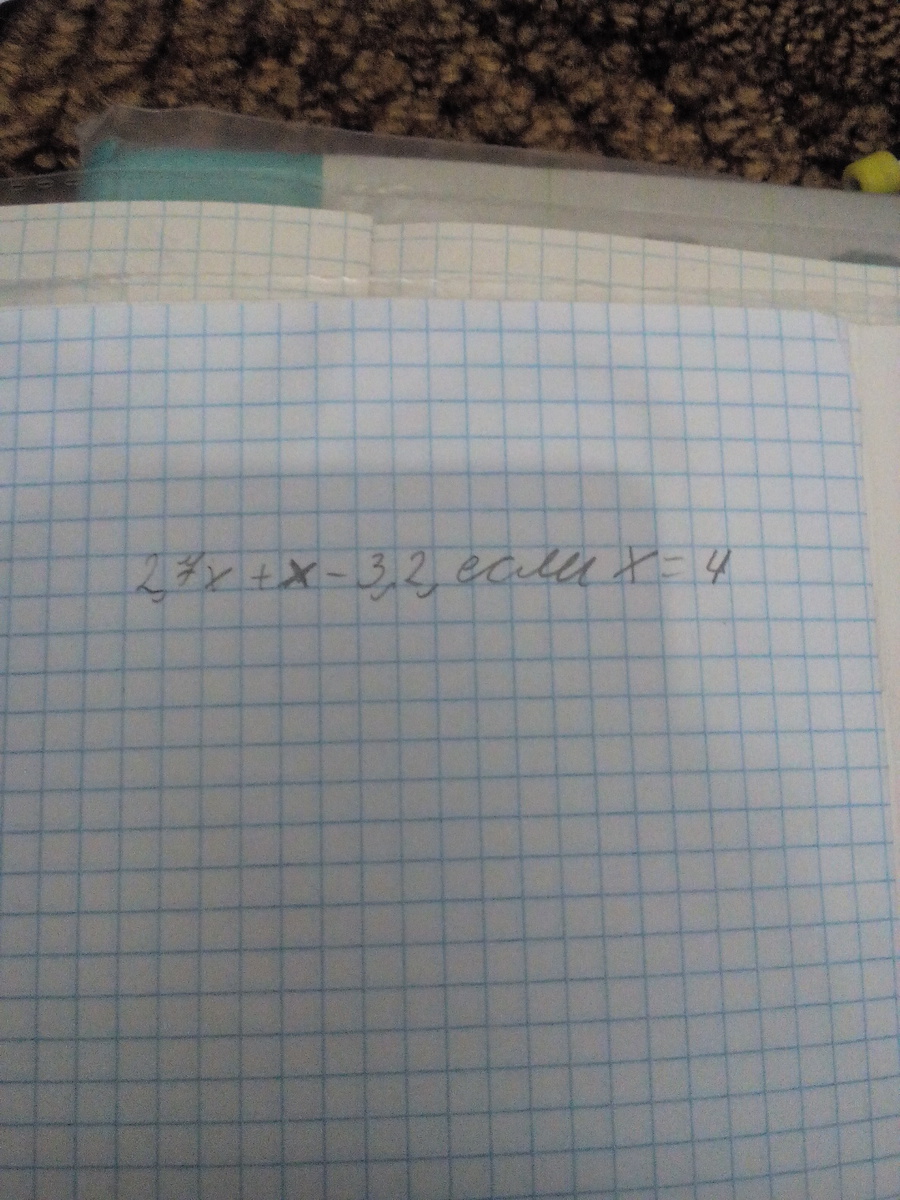 2,7x + x - 3,2, если x = 4